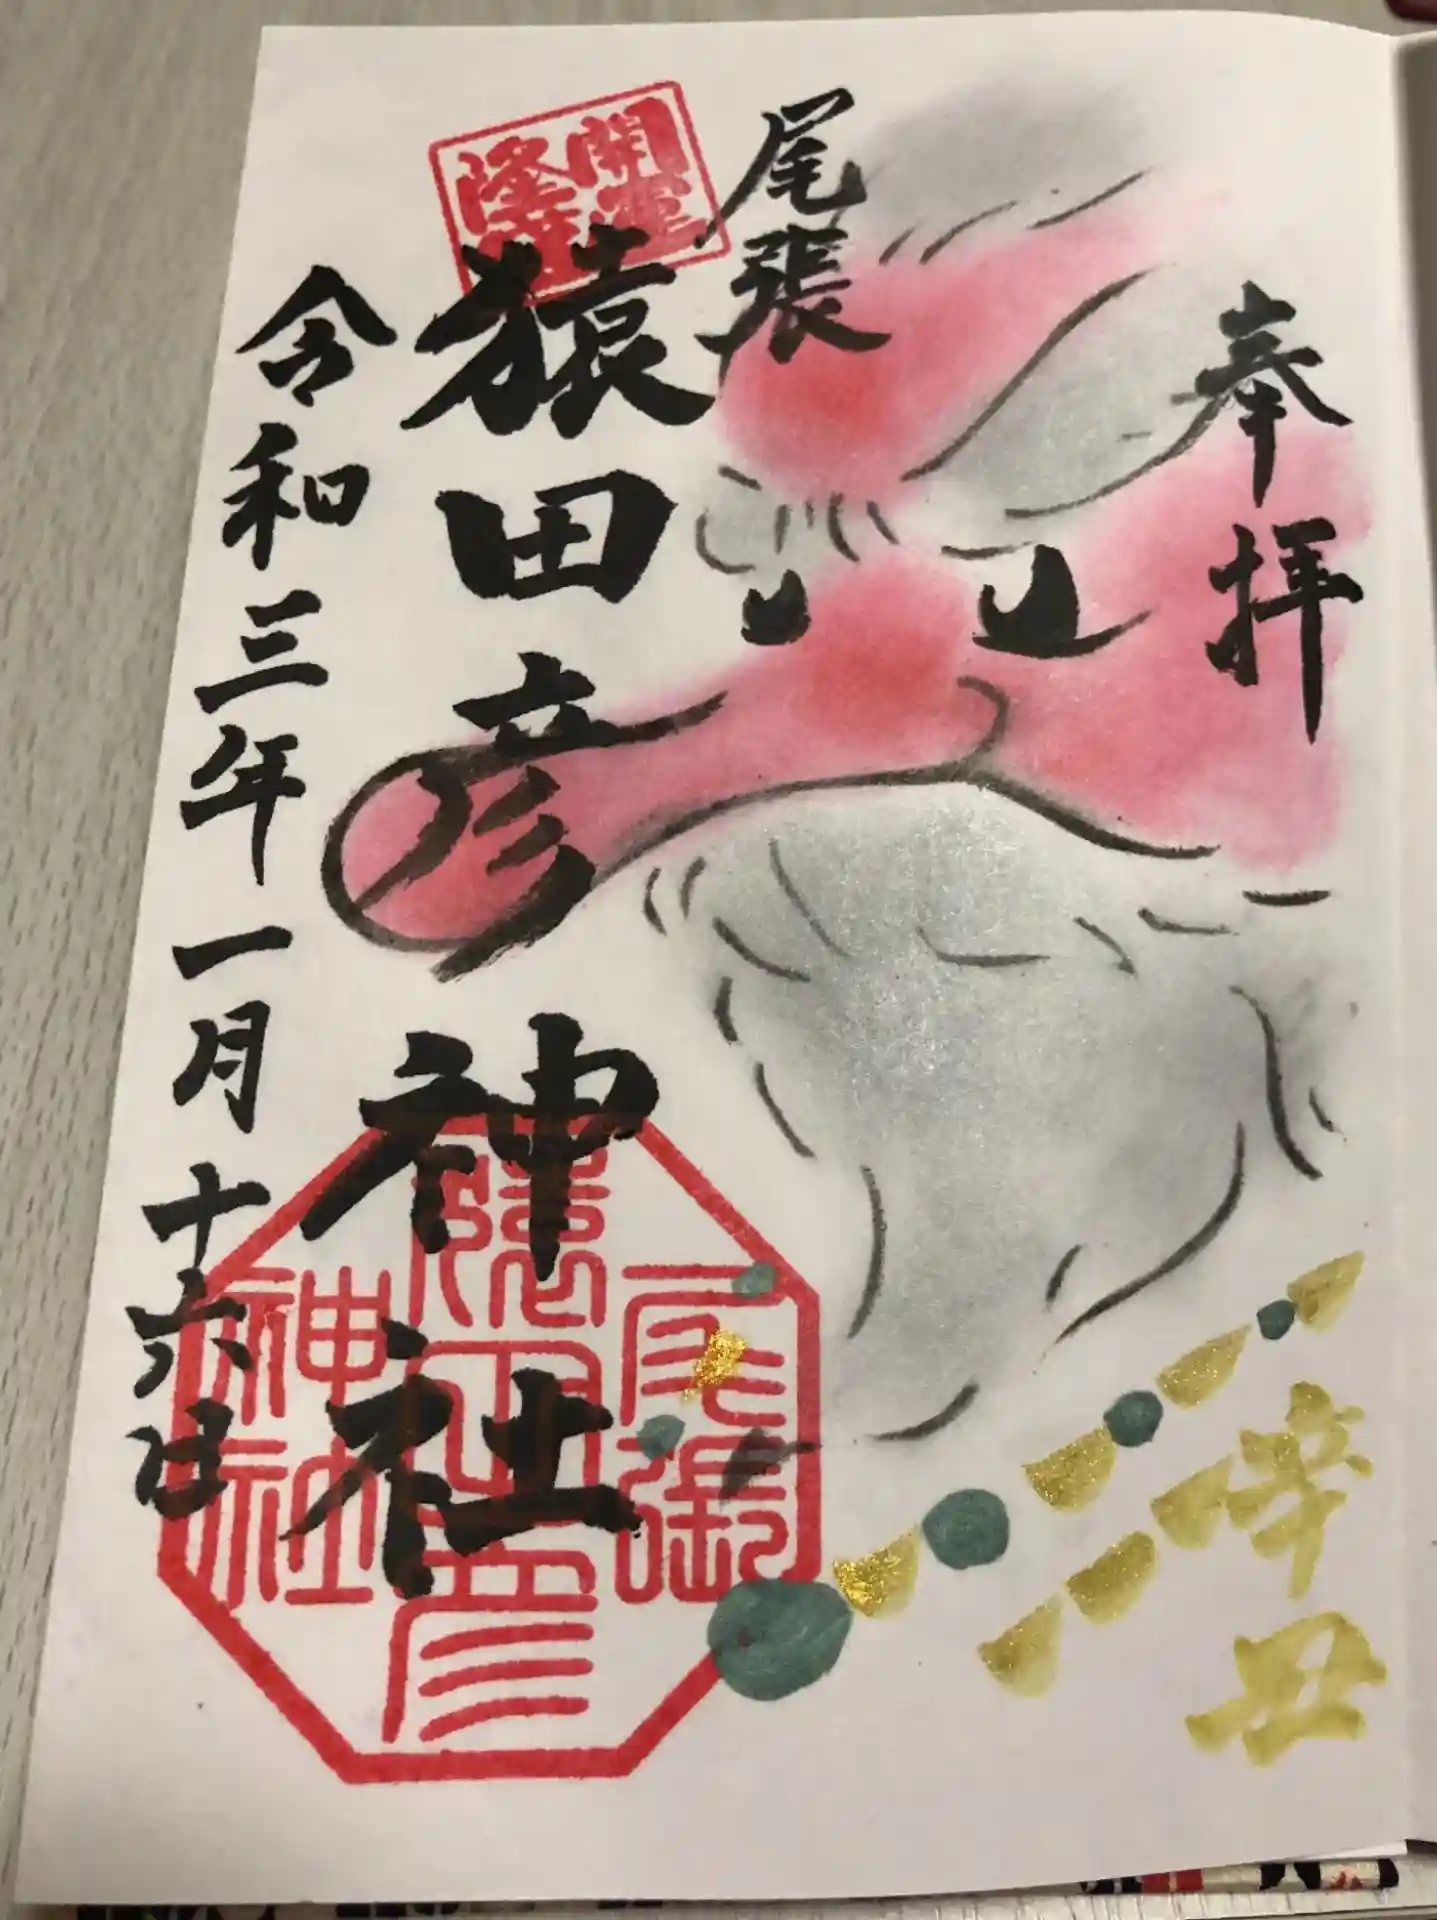 奉拝
辛丑
尾張
開運
猿田彦神社
尾張
猿田彦
神社
令和三年一月十六日